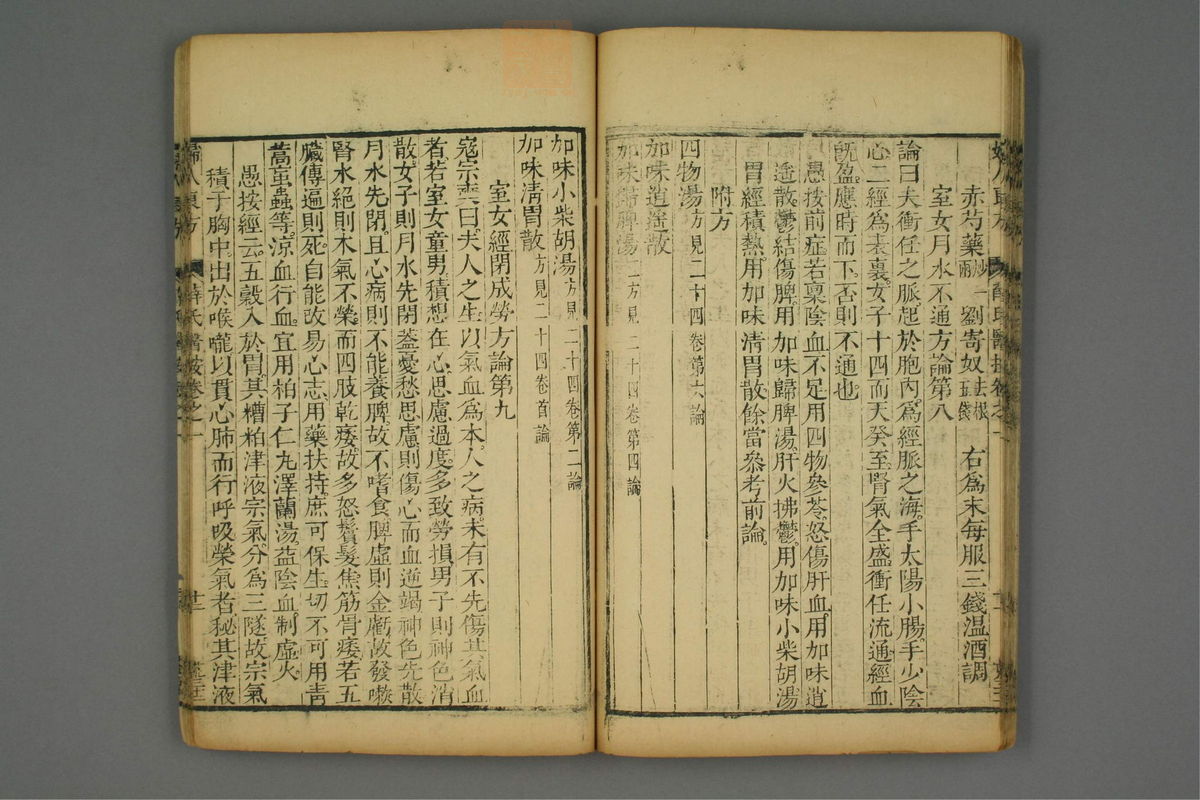 赤芍藥炒 劉寄奴去根 右爲末每服三錢温酒調
室女月水不通方論第八
論曰夫衝任之脈起於胞內爲經脈之海手太陽小腸手少陰
心二經爲表裏女子十四而天癸至腎氣全盛衝任流通經血
既盈應時而下否則不通也
愚按前症若稟陰血不足用四物參苓怒傷肝血用加味逍
遙散鬱結傷脾用加味歸脾湯肝火拂鬱用加味小柴胡湯
胃經積熱用加味清胃散餘當叅考前論
附方
四物湯方見二十四卷第六論
加味逍遙散
加味歸脾湯二方見二十四卷第四論
加味小柴胡湯方見二十四卷第二論
加味清胃散方見二十四卷首論
室女經閉成勞方論第九
寇宗奭曰夫人之生以氣血爲本人之病未有不先傷其氣血
者若室女童男積想在心思慮過度多致勞損男子則神色消
散女子則月水先閉葢憂愁思慮則傷心而血逆竭神色先散
月水先閉且心病則不能養脾故不嗜食脾虛則金虧故發嗽
腎水絕則木氣不榮而四肢乾痿故多怒鬢髮焦筋骨痿若五
臟傳遍則死自能改易心志用藥扶持庶可保生切不可用靑
蒿䖟蟲等凉血行血宜用柏子仁丸澤蘭湯益陰血制虛火
愚按經云五穀入於胃其糟粕津液宗氣分爲三隧故宗氣
積于胸中出於喉嚨以貫心肺而行呼吸榮氣者秘其津液